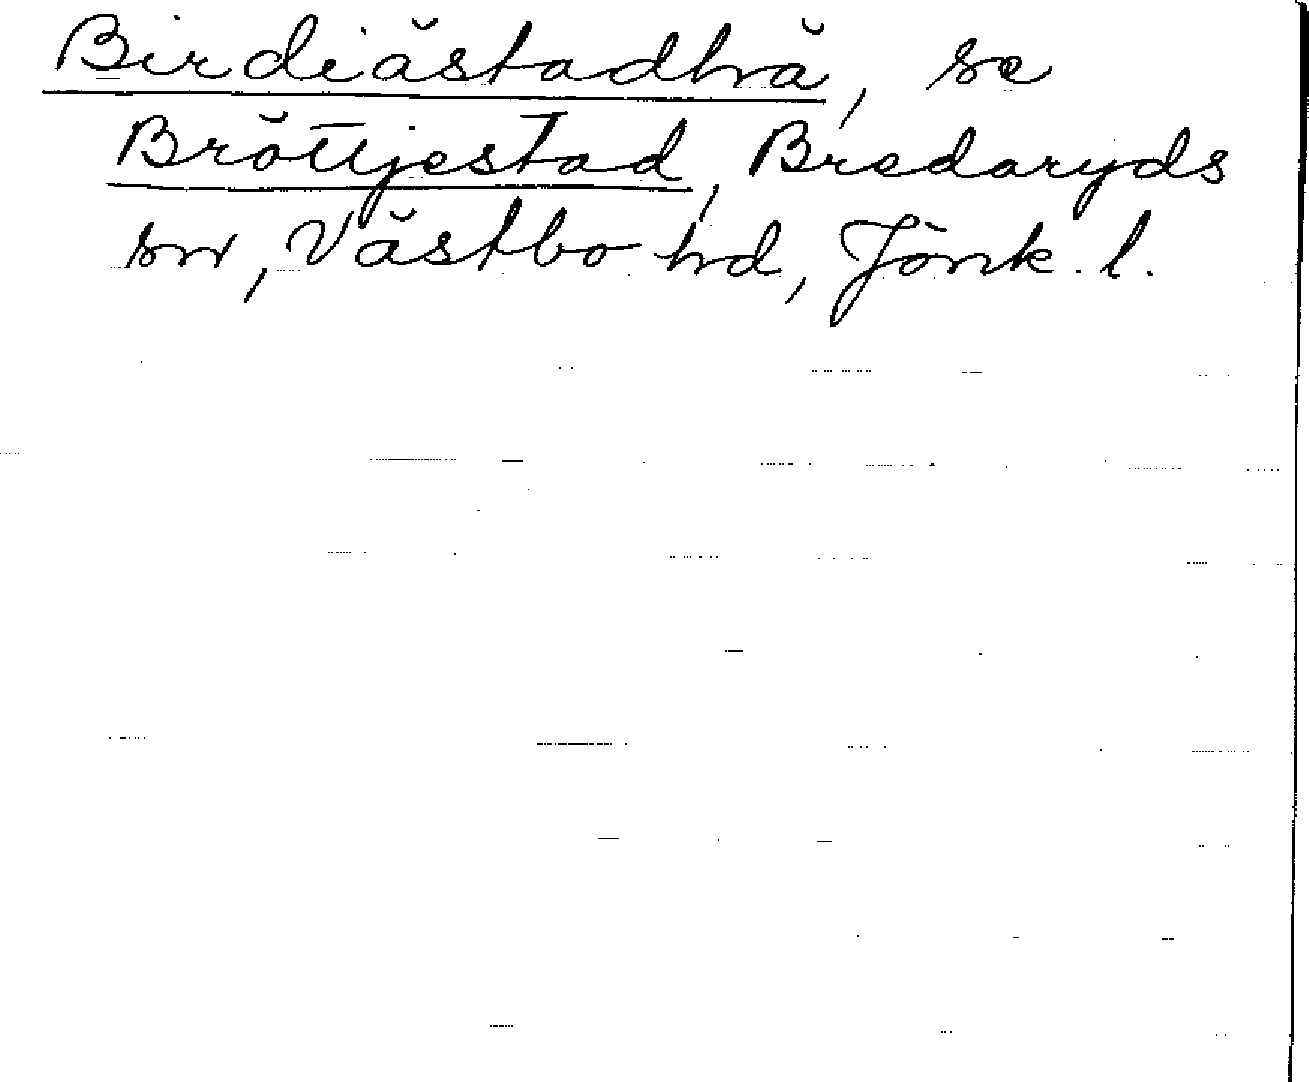 Birdiästadhä, se
Bröttjestad, Bredaryds
sn, Västbo hd, Jönk. l.